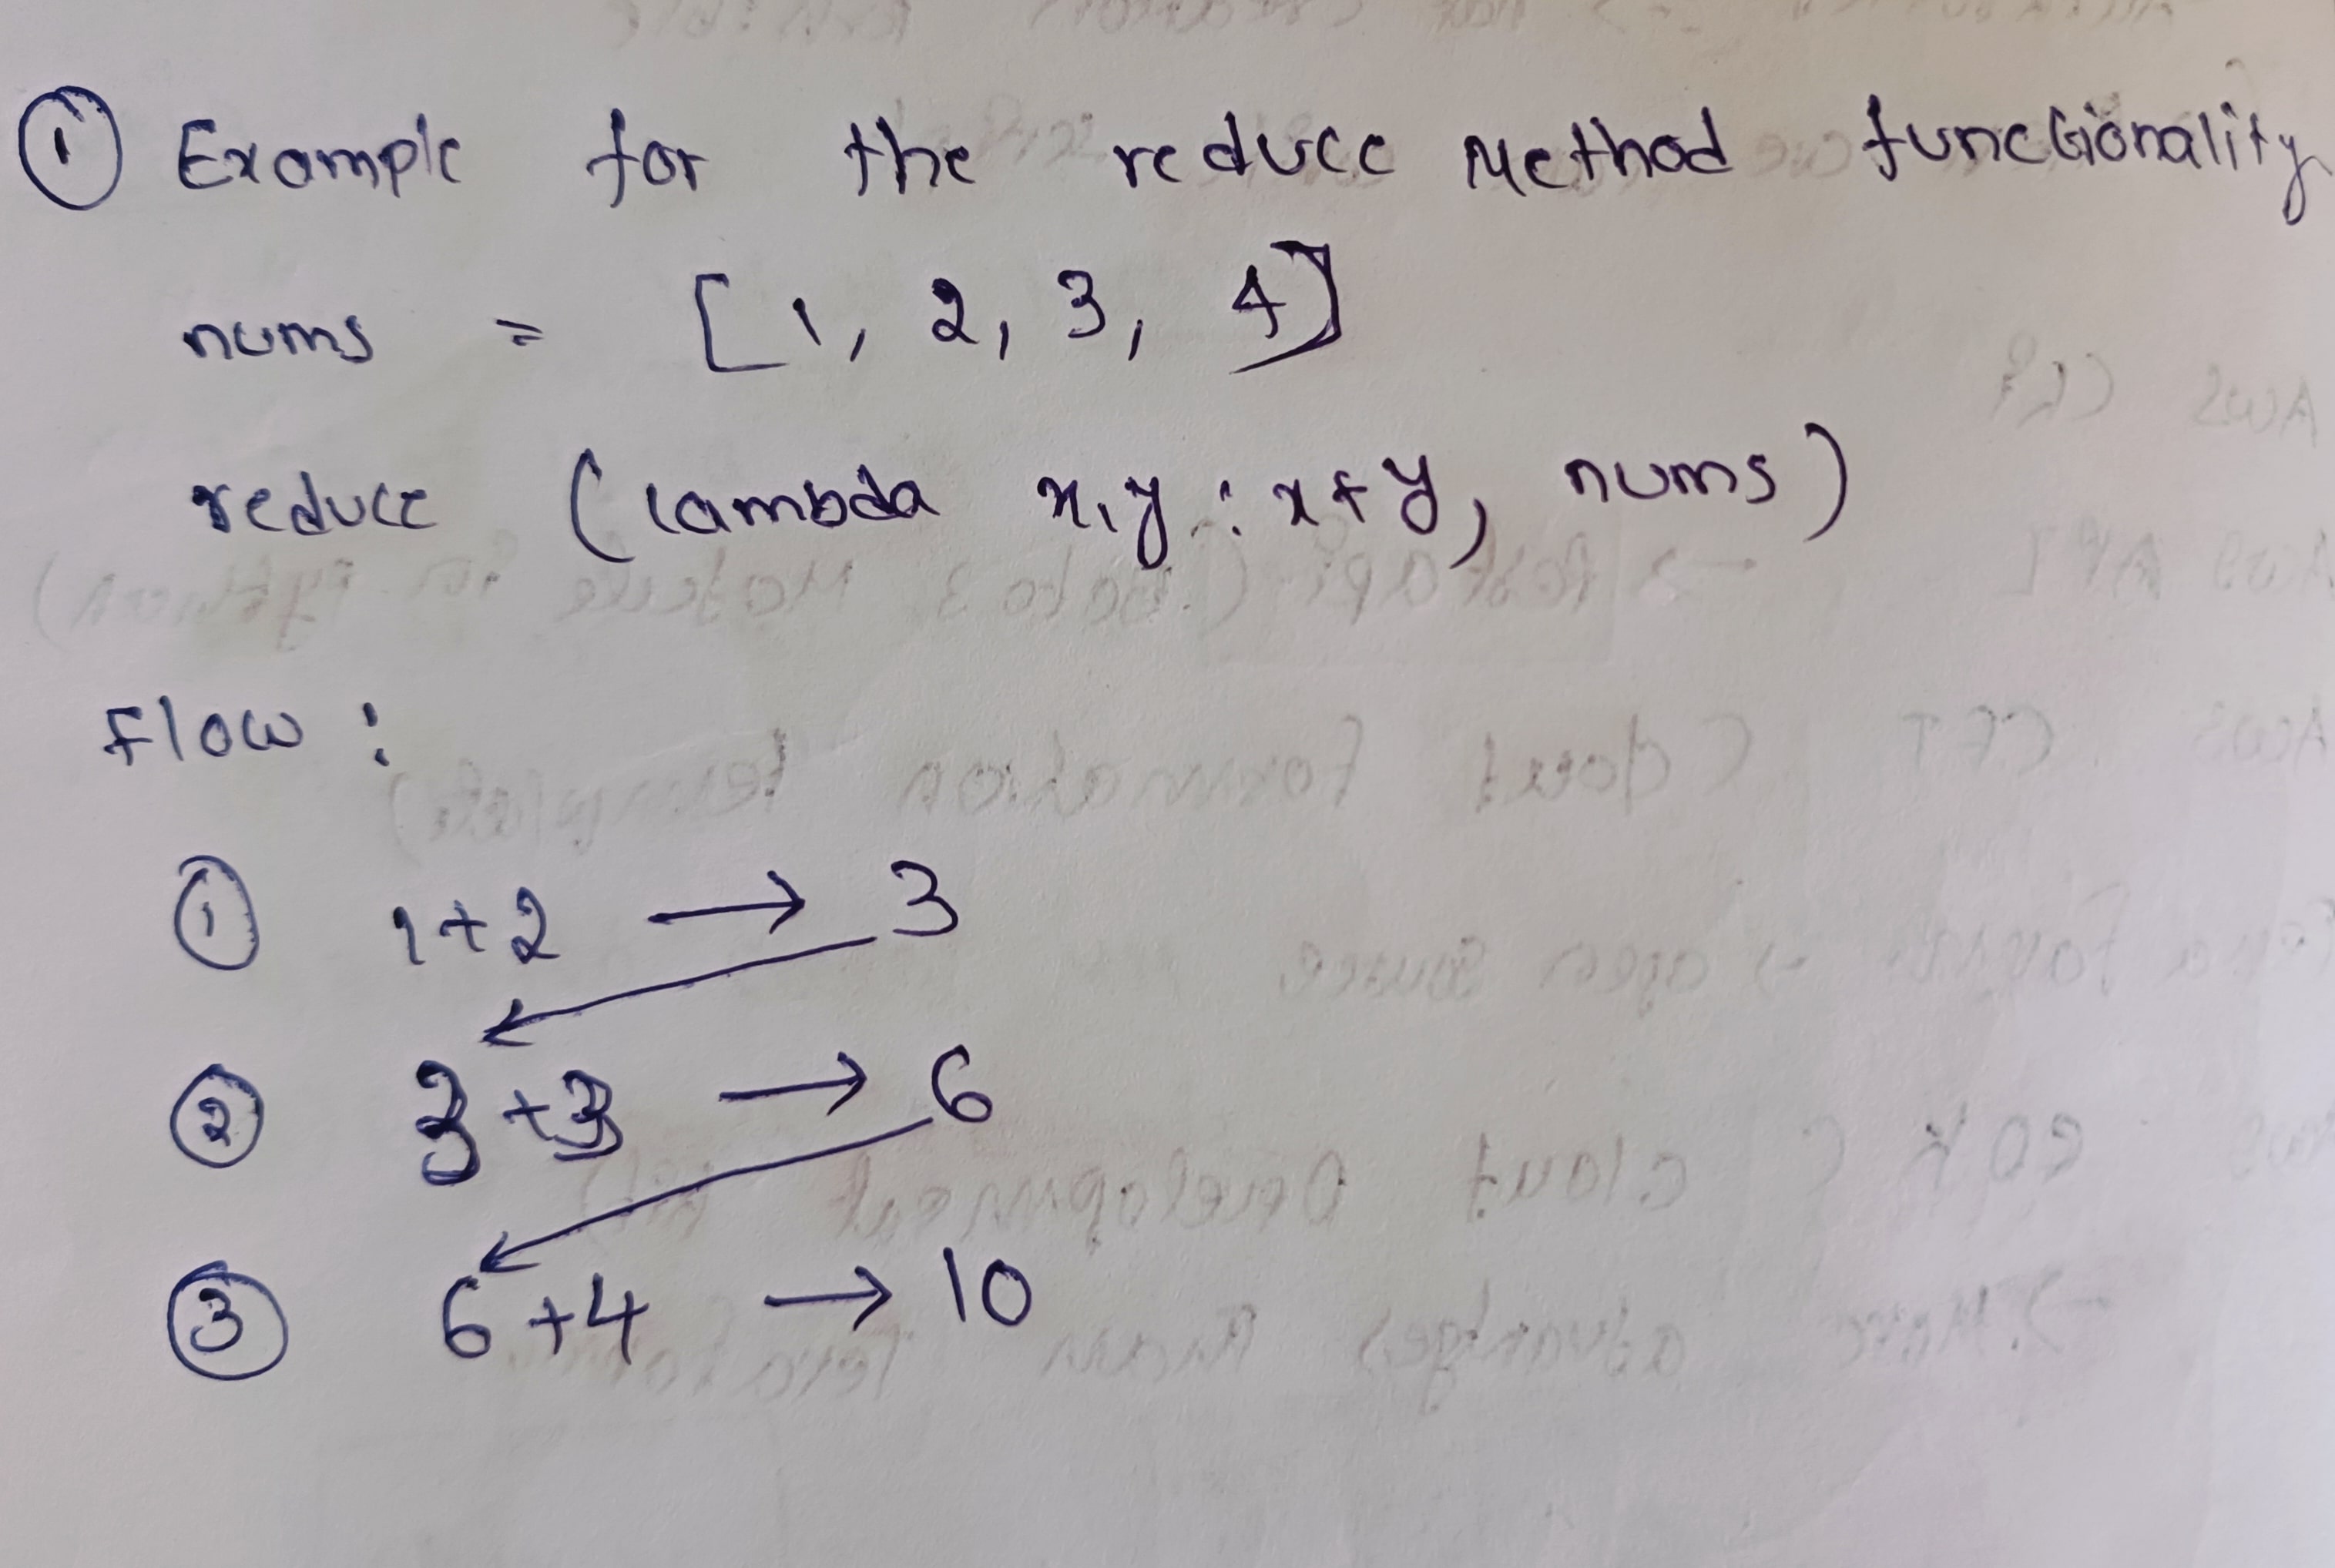 ① Example for the reduce Method functionality
nums = [1, 2, 3, 4]
reduce (lambda x,y : x+y, nums)
Flow :
① 1+2 → 3
② 3+3 → 6
③ 6+4 → 10